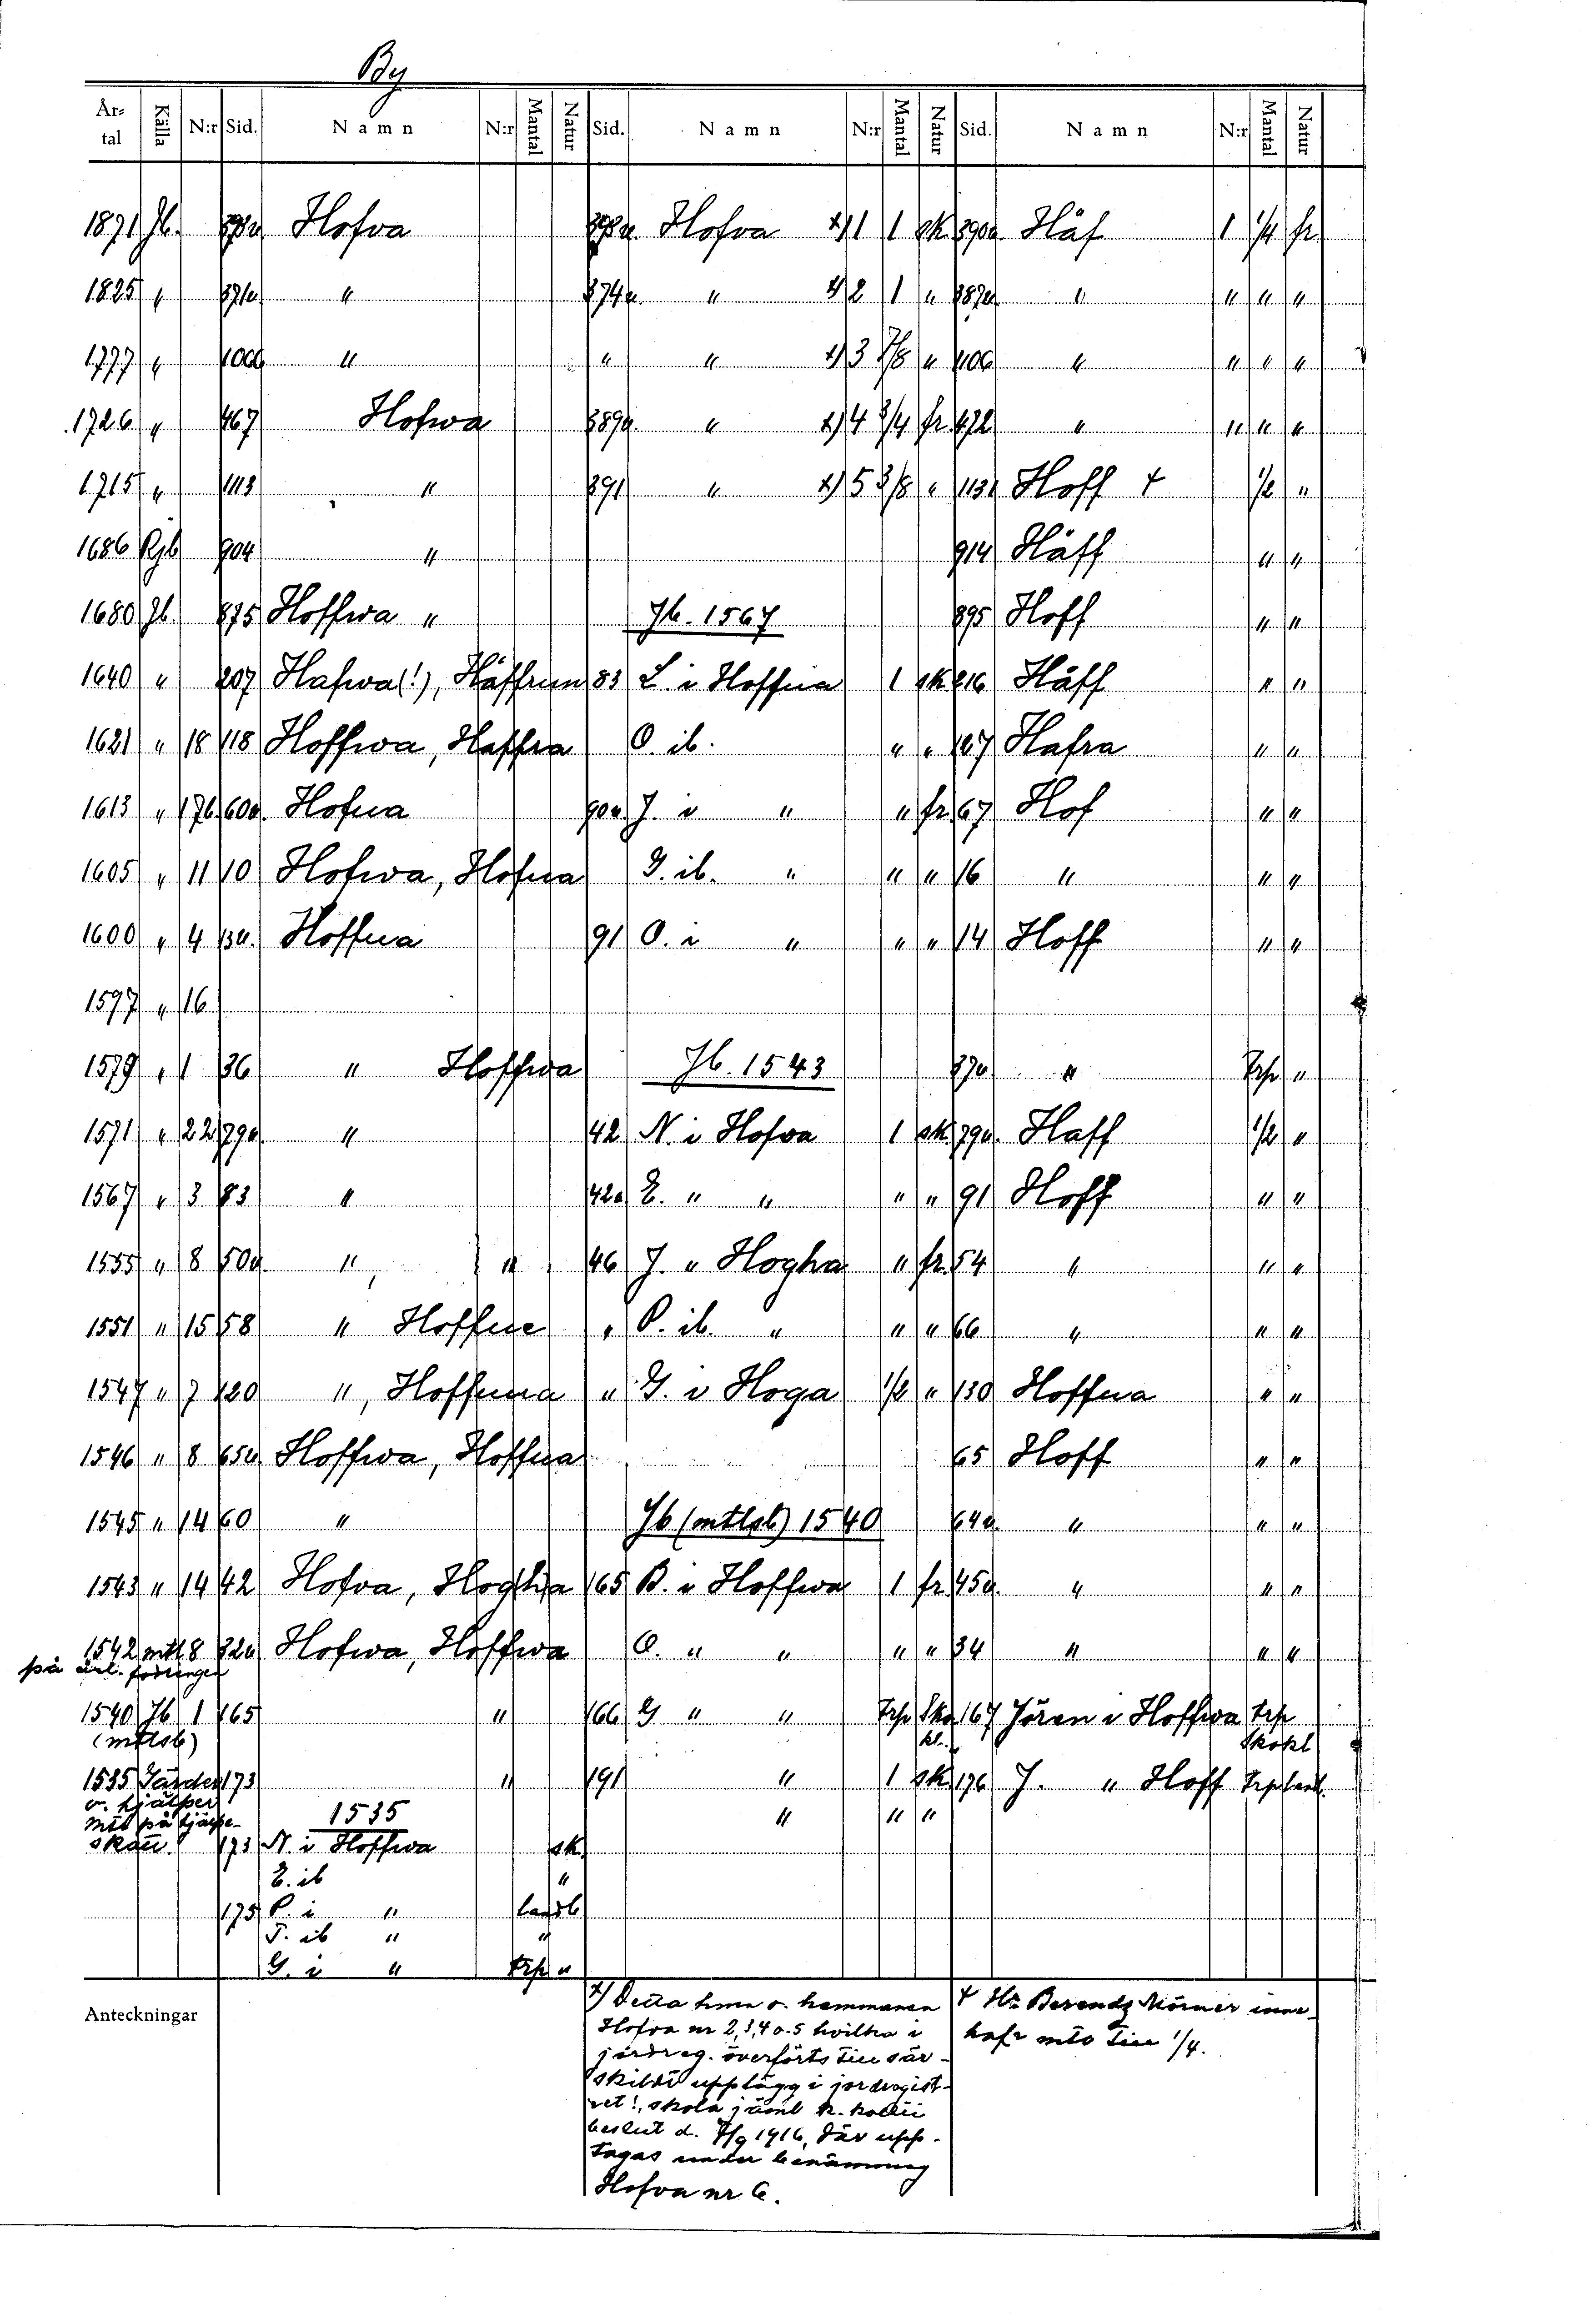 By
År-tal Källa N:r Sid. Namn N:r Mantal Natur Sid. Namn N:r Mantal Natur Sid. Namn N:r Mantal Natur
1871 Jb. Hofva Hofva x) 1 1 sk. 390a Häf 1 1/4 fr.
1825 " 871a " 874a " x) 2 1 " 887a " " " "
1777 " 1066 " " " x) 3 7/8 " 1106 " " " "
1726 " 467 Hofwa 889a " x) 4 3/4 fr. 472 " " " "
1715 " 1113 " 891 " x) 5 3/8 " 1131 Hoff + 1/2 "
1686 Rjb 904 " 914 Häff " "
1680 Jb. 875 Hoffwa " Jb. 1567 895 Hoff " "
1640 " 207 Hafwa(!), Häffrum 83 L. i Hoffua 1 sk 216 Häff " "
1621 " 18 118 Hoffwa, Haffra O ib. " " 127 Hafra " "
1613 " 176 60a. Hofua 90a J. i " " fr. 67 Hof " "
1605 " 11 10 Hofwa, Hofua G. ib. " " " 16 " " "
1600 " 4 13a. Hoffua 91 O. i " " " 14 Hoff " "
1597 " 16
1579 " 1 36 " Hoffwa Jb. 1543 37a " Trp "
1571 " 22 79a " 42 N. i Hofva 1 sk 79a. Haff 1/2 "
1567 " 3 83 " 42a E. " " " " 91 Hoff " "
1555 " 8 50a. " " 46 J. " Hogha " fr. 54 " " "
1551 " 15 58 " Hoffue " P. ib. " " " 66 " " "
1547 " 7 120 ", Hoffuua " G. i Hoga 1/2 " 130 Hoffua " "
1546 " 8 65a Hoffwa, Hoffua 65 Hoff " "
1545 " 14 60 " Jb (mtlsb) 1540 64a. " " "
1543 " 14 42 Hofva, Hogha 165 B. i Hoffwa 1 fr. 45a. " " "
1542 mtl 8 32a Hofwa, Hoffwa O. " " " " 34 " " "
på årl. fodringen
1540 Jb 1 165 " 166 G " " Trp Sko 167 Jöran i Hoffwa trp
(mtlsb) kl. Skokl
1535 Gärder 173 " 191 " 1 sk 176 J. " Hoff Trp landb.
o. hjälper " " "
mtl på hjälpe- 1535
skatt. 173 N. i Hoffwa sk.
E. ib "
175 P. i " landb
T. ib " "
G. i " trp "
Anteckningar
x) Detta hmn o. hemmanen
Hofva nr 2, 3, 4 o. 5 hvilka i
jordreg. överförts till sär-
skildt upplägg i jordregist-
ret!, skola jäml k. kollii
beslut d. 7/9 1916, där upp-
tagas under benämning
Hofva nr 6.
+ Hr Berendz Mörner inne-
hafr mto till 1/4.